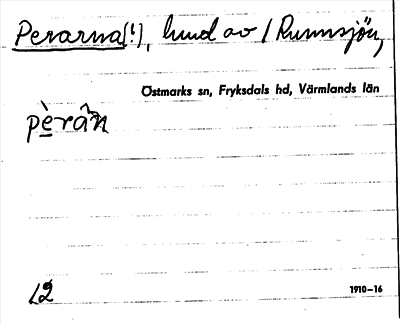 Perarna(!), hund av / Runnsjön,
Östmarks sn, Fryksdals hd, Värmlands län
pèrân
12
1910–16